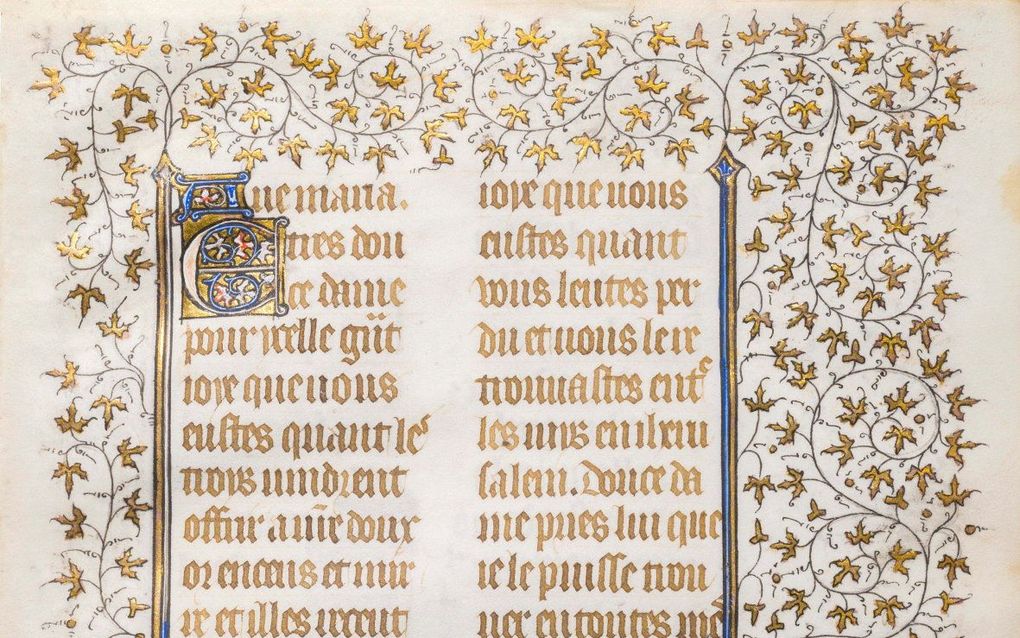 Aue maria.
Etres dou
ce dame
pour ycelle gñt
ioye que uous
eustes quant leˢ
troys uindrent
offrir a ur̃e doux
or encens et mir
re et illes receut
ioye que uous
eustes quant
uous leutes per
du et uous le re
trouuastes entᵉ
les iuis en iheru
salem. Douce da
me pries lui que
ie le puisse trou
uer en toutes meˢ